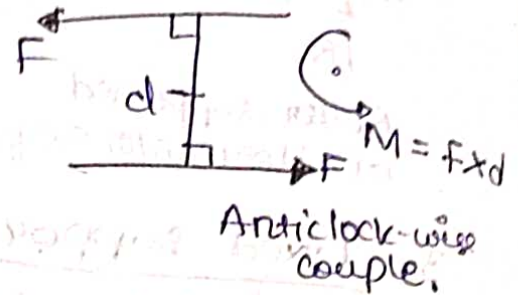 F
d
M = F×d
F
Anticlock-wise
couple.